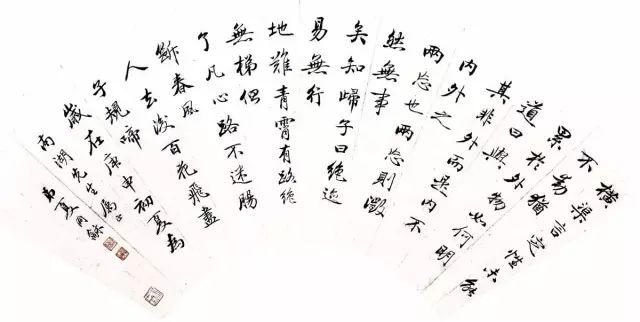 橫渠言定性未能
不動猶
累於外物如何明
道曰與
其非外而是內不
內外之
兩忘也兩忘則澂
然無事
矣知歸子曰絕迹
易無行
地難青霄有路絕
無梯但
了凡心路不迷腸
斷春風
人去後百花飛盡
子規啼
歲在庚申初夏為
南湖先生屬正
弟夏同龢